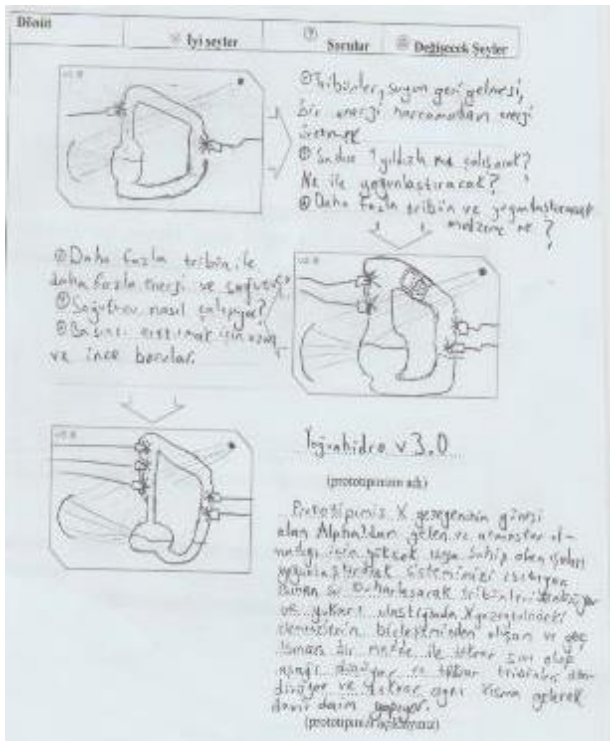 Dönüt
İyi şeyler
? Sorular
Değişecek Şeyler
v1.0
Tribünler, suyun geri gelmesi,
bir enerji harcamadan enerji
üretmek
Sadece 1 yıldızla mı çalışacak?
Ne ile yoğunlaştıracak?
Daha fazla tribün ve yoğunlaştıracak
malzeme ne?
Daha fazla tribün ile
daha fazla enerji ve soğutucu
Soğutucu nasıl çalışıyor?
Basıncı arttırmak için uzun
ve ince borular.
v2.0
v3.0
Yoğunhidro v3.0
(prototipinizin adı)
Prototipimiz X gezegeninin güneşi
olan Alpha'dan gelen ve atmosfer ol-
madığı için yüksek ısıya sahip olan ışınları
yoğunlaştırarak sistemimizi ısıtıyor
ısınan su buharlaşarak tribünleri
ve yukarı ulaştığında X gezegenindeki
elementlerin birleşiminden oluşan ve geç
ısınan bir madde ile tekrar sıvı olup
aşağı düşüyor ve tekrar tribünleri dön-
dürüyor ve tekrar aynı kısma gelerek
devir daim yapıyor.